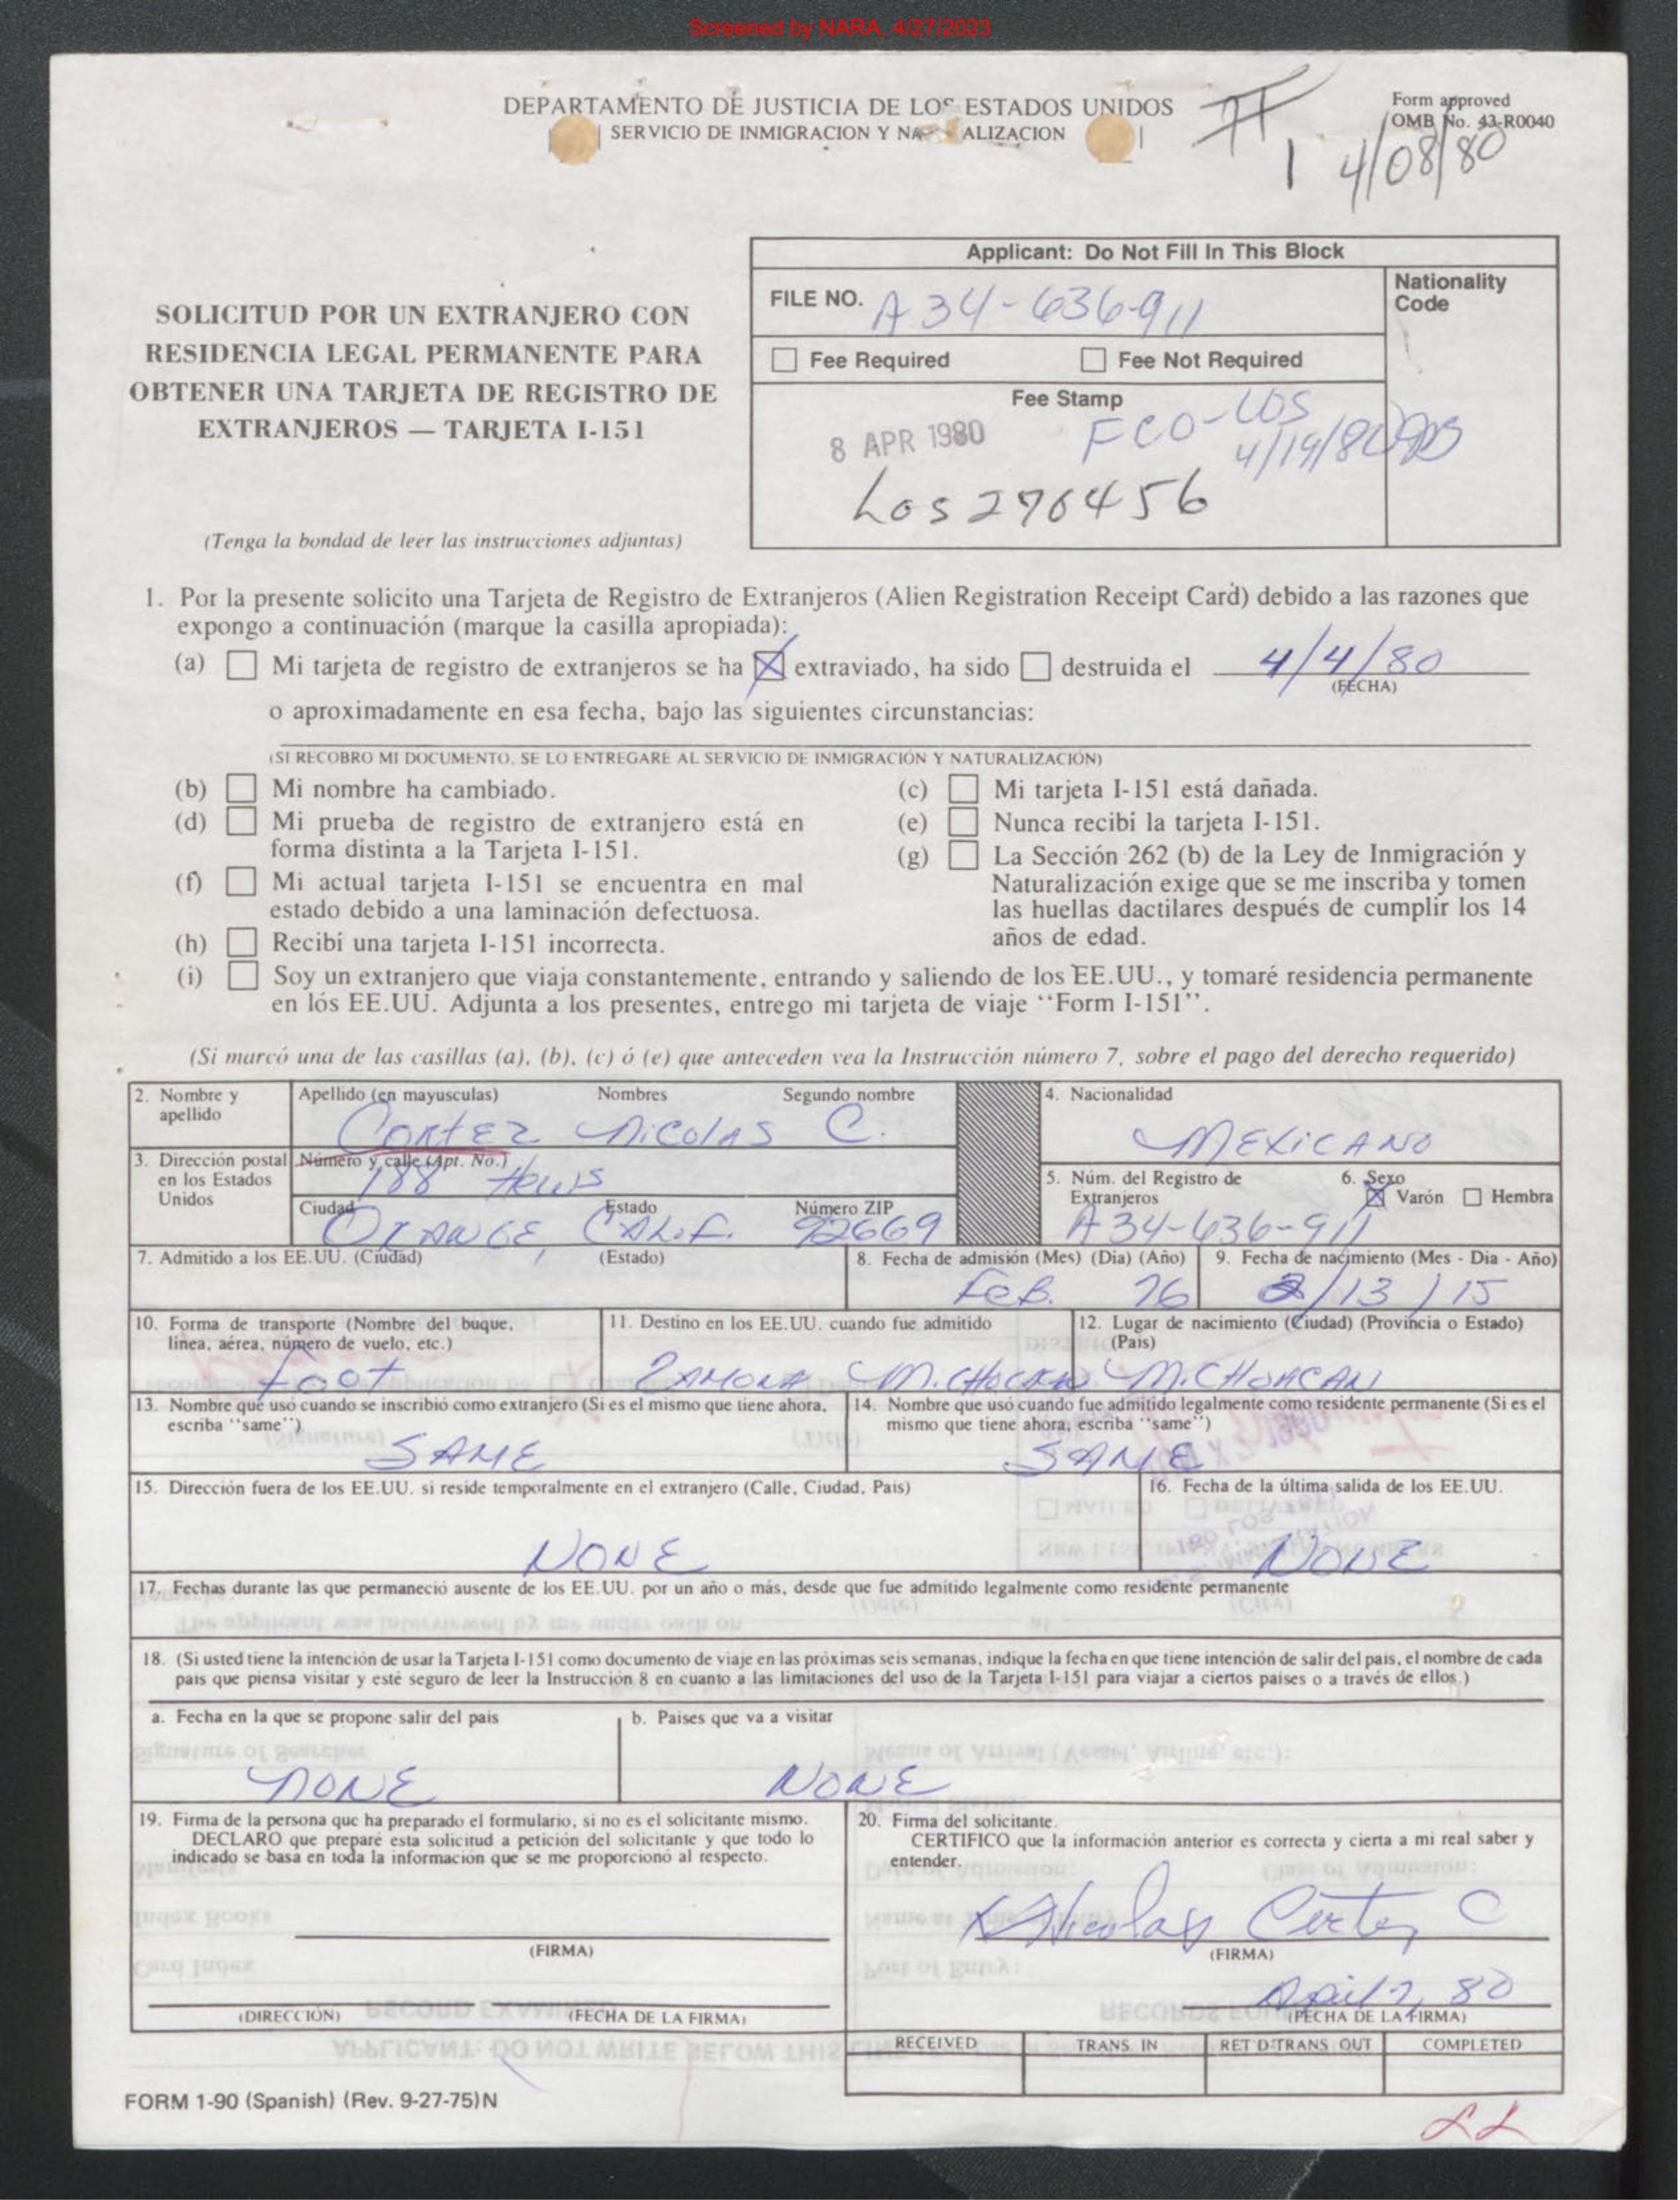 Screened by NARA, 4/27/2023
DEPARTAMENTO DE JUSTICIA DE LOS ESTADOS UNIDOS
SERVICIO DE INMIGRACION Y NA ALIZACION
Form approved
OMB No. 43-R0040
1 4/08/80
SOLICITUD POR UN EXTRANJERO CON
RESIDENCIA LEGAL PERMANENTE PARA
OBTENER UNA TARJETA DE REGISTRO DE
EXTRANJEROS — TARJETA I-151
(Tenga la bondad de leer las instrucciones adjuntas)
Applicant: Do Not Fill In This Block
FILE NO. A34-636-911
Nationality
Code
Fee Required Fee Not Required
Fee Stamp
8 APR 1980
FCO-LOS
4/19/80
Los 276456
1. Por la presente solicito una Tarjeta de Registro de Extranjeros (Alien Registration Receipt Card) debido a las razones que
expongo a continuación (marque la casilla apropiada):
(a) Mi tarjeta de registro de extranjeros se ha X extraviado, ha sido destruida el 4/4/80
(FECHA)
o aproximadamente en esa fecha, bajo las siguientes circunstancias:
(SI RECOBRO MI DOCUMENTO, SE LO ENTREGARE AL SERVICIO DE INMIGRACIÓN Y NATURALIZACIÓN)
(b) Mi nombre ha cambiado.
(c) Mi tarjeta I-151 está dañada.
(d) Mi prueba de registro de extranjero está en
forma distinta a la Tarjeta I-151.
(e) Nunca recibí la tarjeta I-151.
(f) Mi actual tarjeta I-151 se encuentra en mal
estado debido a una laminación defectuosa.
(g) La Sección 262 (b) de la Ley de Inmigración y
Naturalización exige que se me inscriba y tomen
las huellas dactilares después de cumplir los 14
años de edad.
(h) Recibí una tarjeta I-151 incorrecta.
(i) Soy un extranjero que viaja constantemente, entrando y saliendo de los EE.UU., y tomaré residencia permanente
en lós EE.UU. Adjunta a los presentes, entrego mi tarjeta de viaje "Form I-151".
(Si marcó una de las casillas (a), (b), (c) ó (e) que anteceden vea la Instrucción número 7, sobre el pago del derecho requerido)
2. Nombre y
apellido
Apellido (en mayusculas) Nombres Segundo nombre
Cortez Nicolas C.
4. Nacionalidad
MEXICANO
3. Dirección postal
en los Estados
Unidos
Número y calle (Apt. No.)
188
Ciudad Estado Número ZIP
ORANGE, CALIF. 92669
5. Núm. del Registro de
Extranjeros
A34-636-911
6. Sexo
X Varón Hembra
7. Admitido a los EE.UU. (Ciudad) (Estado)
8. Fecha de admisión (Mes) (Dia) (Año)
Feb. 76
9. Fecha de nacimiento (Mes - Dia - Año)
2/13/15
10. Forma de transporte (Nombre del buque,
linea, aérea, número de vuelo, etc.)
Foot
11. Destino en los EE.UU. cuando fue admitido
ZAMORA
12. Lugar de nacimiento (Ciudad) (Provincia o Estado)
(Pais)
MICHOACAN
13. Nombre que usó cuando se inscribió como extranjero (Si es el mismo que tiene ahora,
escriba "same")
SAME
14. Nombre que usó cuando fue admitido legalmente como residente permanente (Si es el
mismo que tiene ahora, escriba "same")
SAME
15. Dirección fuera de los EE.UU. si reside temporalmente en el extranjero (Calle, Ciudad, Pais)
NONE
16. Fecha de la última salida de los EE.UU.
NONE
17. Fechas durante las que permaneció ausente de los EE.UU. por un año o más, desde que fue admitido legalmente como residente permanente
18. (Si usted tiene la intención de usar la Tarjeta I-151 como documento de viaje en las próximas seis semanas, indique la fecha en que tiene intención de salir del pais, el nombre de cada
pais que piensa visitar y esté seguro de leer la Instrucción 8 en cuanto a las limitaciones del uso de la Tarjeta I-151 para viajar a ciertos paises o a través de ellos.)
a. Fecha en la que se propone salir del pais
NONE
b. Paises que va a visitar
NONE
19. Firma de la persona que ha preparado el formulario, si no es el solicitante mismo.
DECLARO que preparé esta solicitud a petición del solicitante y que todo lo
indicado se basa en toda la información que se me proporcionó al respecto.
(FIRMA)
(DIRECCIÓN) (FECHA DE LA FIRMA)
20. Firma del solicitante.
CERTIFICO que la información anterior es correcta y cierta a mi real saber y
entender.
Nicolas Cortez C
(FIRMA)
April 7, 80
(FECHA DE LA FIRMA)
RECEIVED TRANS. IN RET'D-TRANS. OUT COMPLETED
FORM 1-90 (Spanish) (Rev. 9-27-75)N